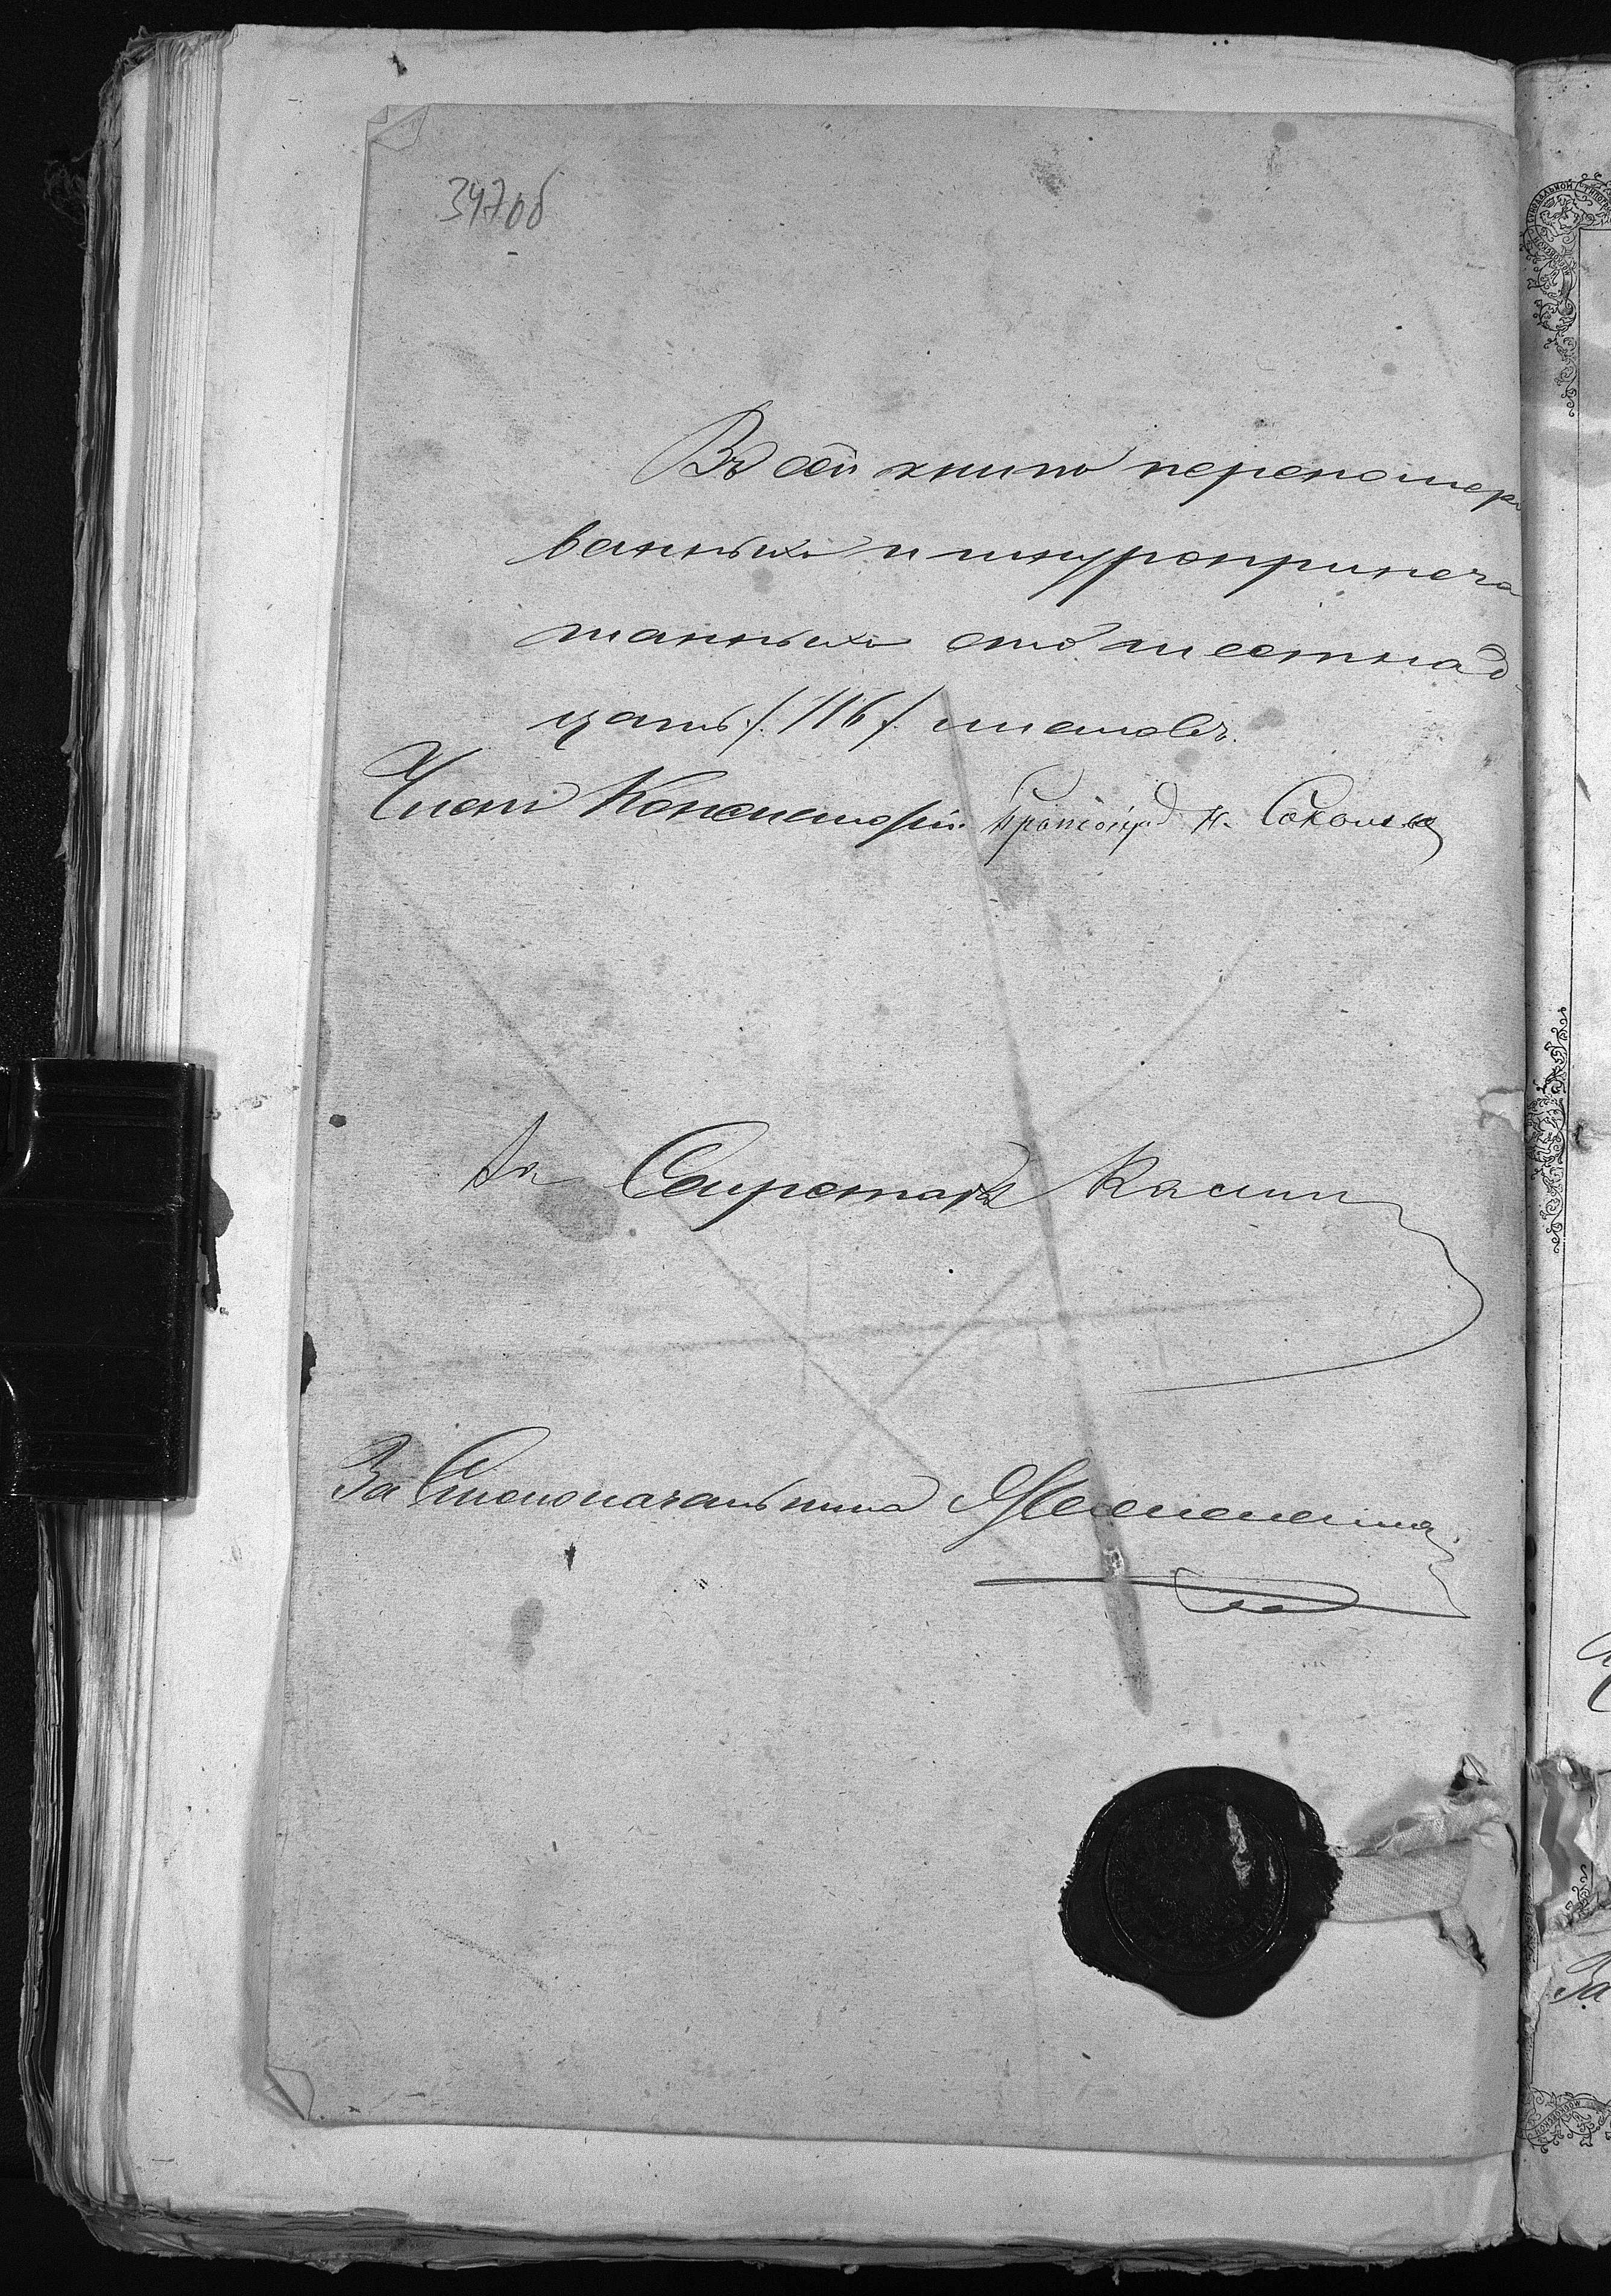 347об
Въ сей книгѣ перенумеро
ванныхъ и шнуроприпеча
танныхъ сто шестнад
цать /116/ листовъ.
Членъ Консисторіи Протоіер. Н. Соколов
За Секретаря
За Столоначальника
За